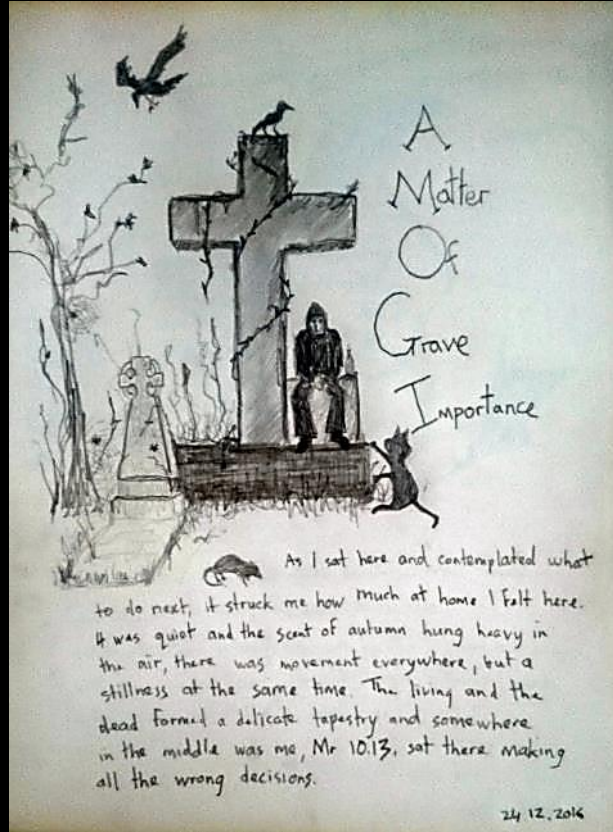 A
Matter
Of
Grave
Importance
As I sat here and contemplated what
to do next, it struck me how much at home I felt here.
It was quiet and the scent of autumn hung heavy in
the air, there was movement everywhere, but a
stillness at the same time. The living and the
dead formed a delicate tapestry and somewhere
in the middle was me, Mr 10.13, sat there making
all the wrong decisions.
24.12.2016